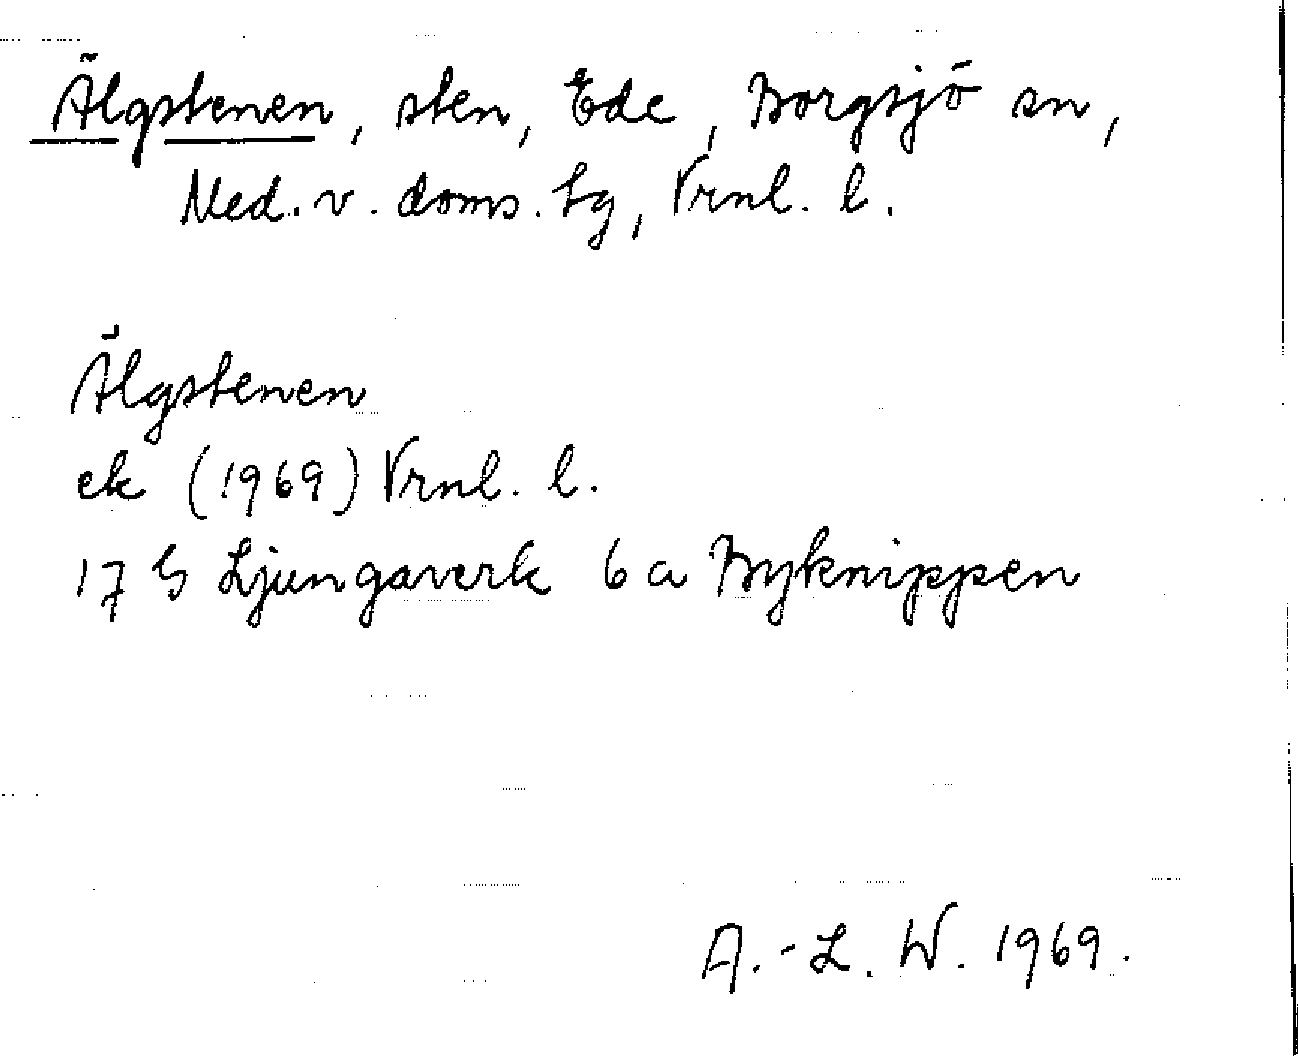 Älgstenen, sten, Ede, Borgsjö sn,
Med. v. doms. tg, Vrnl. l.
Älgstenen
ek (1969) Vrnl. l.
17 G Ljungaverk 6 a Byknippen
A.-L. W. 1969.